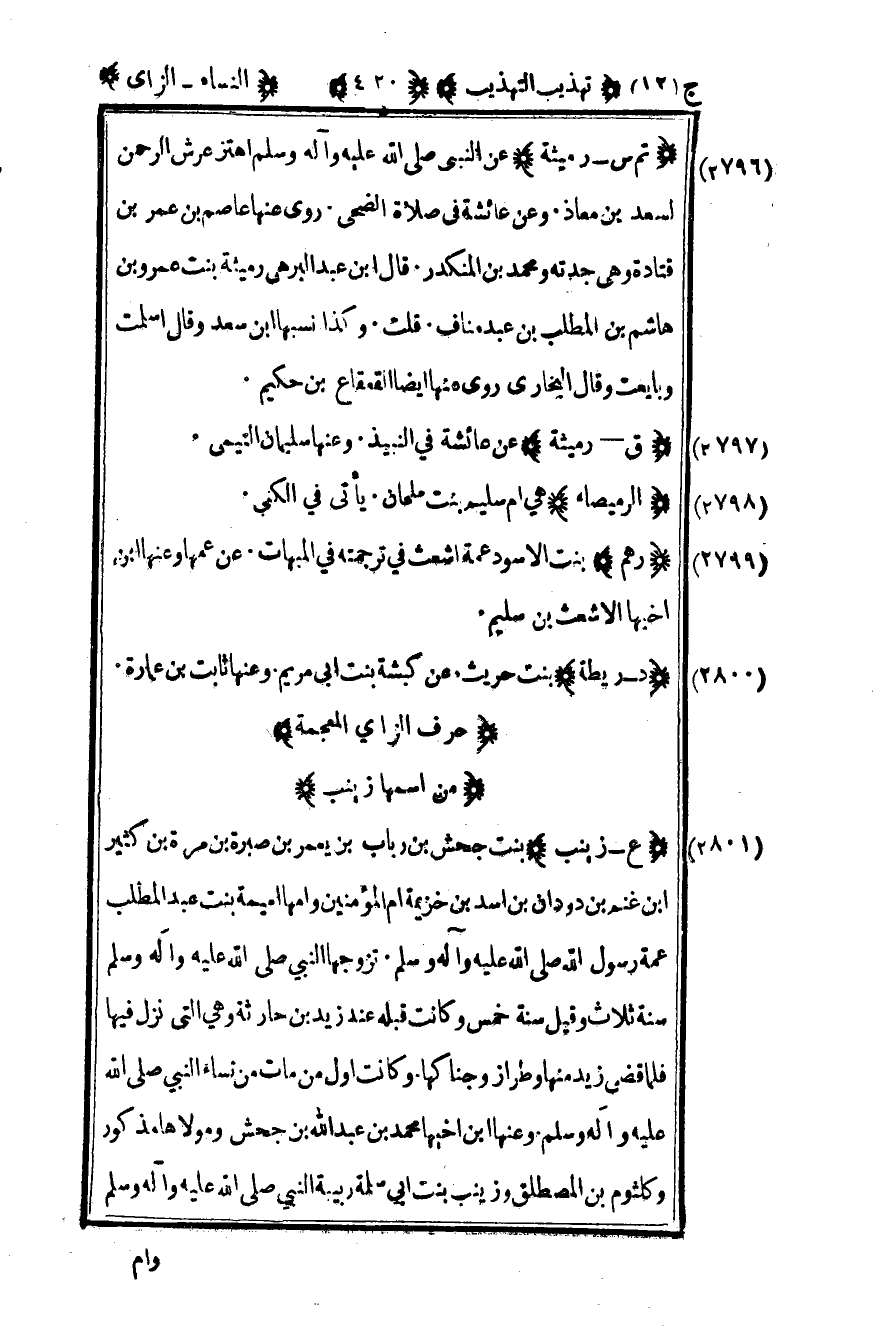 ج (١٢) ﴿ تهذيب التهذيب ﴾ ﴿ ٤٢٠ ﴾ ﴿ النساء ـ الزاى ﴾
(٢٧٩٦) ﴿ تم س ـ رميثة ﴾ عن النبى صلى الله عليه وآله وسلم اهتز عرش الرحمن
لسعد بن معاذ٠ وعن عائشة فى صلاة الضحى٠ روى عنها عاصم بن عمر بن
قتادة وهى جدته ومحمد بن المنكدر٠ قال ابن عبد البر هى رميثة بنت عمرو بن
هاشم بن المطلب بن عبد مناف٠ قلت٠ وكذا نسبها ابن سعد وقال اسلمت
وبايعت وقال البخارى روى عنها ايضا القعقاع بن حكيم ٠
(٢٧٩٧) ﴿ ق ـ رميثة ﴾ عن عائشة في النبيذ٠ وعنها سليمان التيمى ٠
(٢٧٩٨) ﴿ الرميصاء ﴾ هي ام سليم بنت ملحان٠ يأتى في الكنى٠
(٢٧٩٩) ﴿ رهم ﴾ بنت الاسود عمة اشعث في ترجمته في المبهمات٠ عن عمها وعنها ابن
اخيها الاشعث بن سليم٠
(٢٨٠٠) ﴿ د ـ ريطة ﴾ بنت حريث٠ عن كبشة بنت ابى مريم٠ وعنها ثابت بن عمارة٠
﴿ حرف الزاي المعجمة ﴾
﴿ من اسمها زينب ﴾
(٢٨٠١) ﴿ ع ـ زينب ﴾ بنت جحش بن رباب بن يعمر بن صبرة بن مرة بن كثير
ابن غنم بن دودان بن اسد بن خزيمة ام المؤمنين وامها اميمة بنت عبد المطلب
عمة رسول الله صلى الله عليه وآله وسلم٠ تزوجها النبي صلى الله عليه وآله وسلم
سنة ثلاث وقيل سنة خمس وكانت قبله عند زيد بن حارثة وهي التى نزل فيها
فلما قضى زيد منها وطرا زوجناكها٠ وكانت اول من مات من نساء النبي صلى الله
عليه وآله وسلم٠ وعنها ابن اخيها محمد بن عبد الله بن جحش ومولاها مذكور
وكلثوم بن المصطلق وزينب بنت ابي سلمة ربيبة النبي صلى الله عليه وآله وسلم
وام